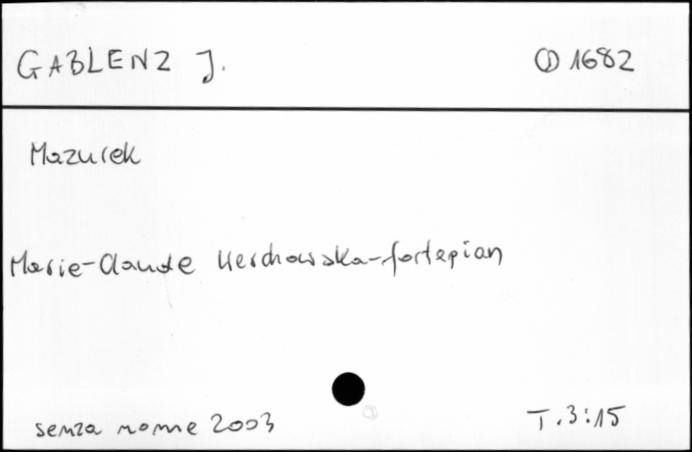 GABLENZ J.
CD 1682
Mazurek
Marie-Claude Werchowska-fortepian
senza nome 2003
T. 3:15